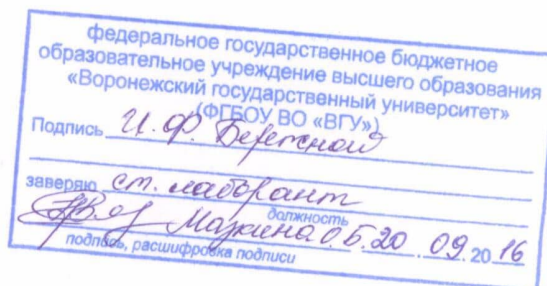 федеральное государственное бюджетное
образовательное учреждение высшего образования
«Воронежский государственный университет»
(ФГБОУ ВО «ВГУ»)
Подпись И. Ф. Бережной
заверяю ст. лаборант
должность
О.Б. 20 . 09 . 20 16
подпись, расшифровка подписи